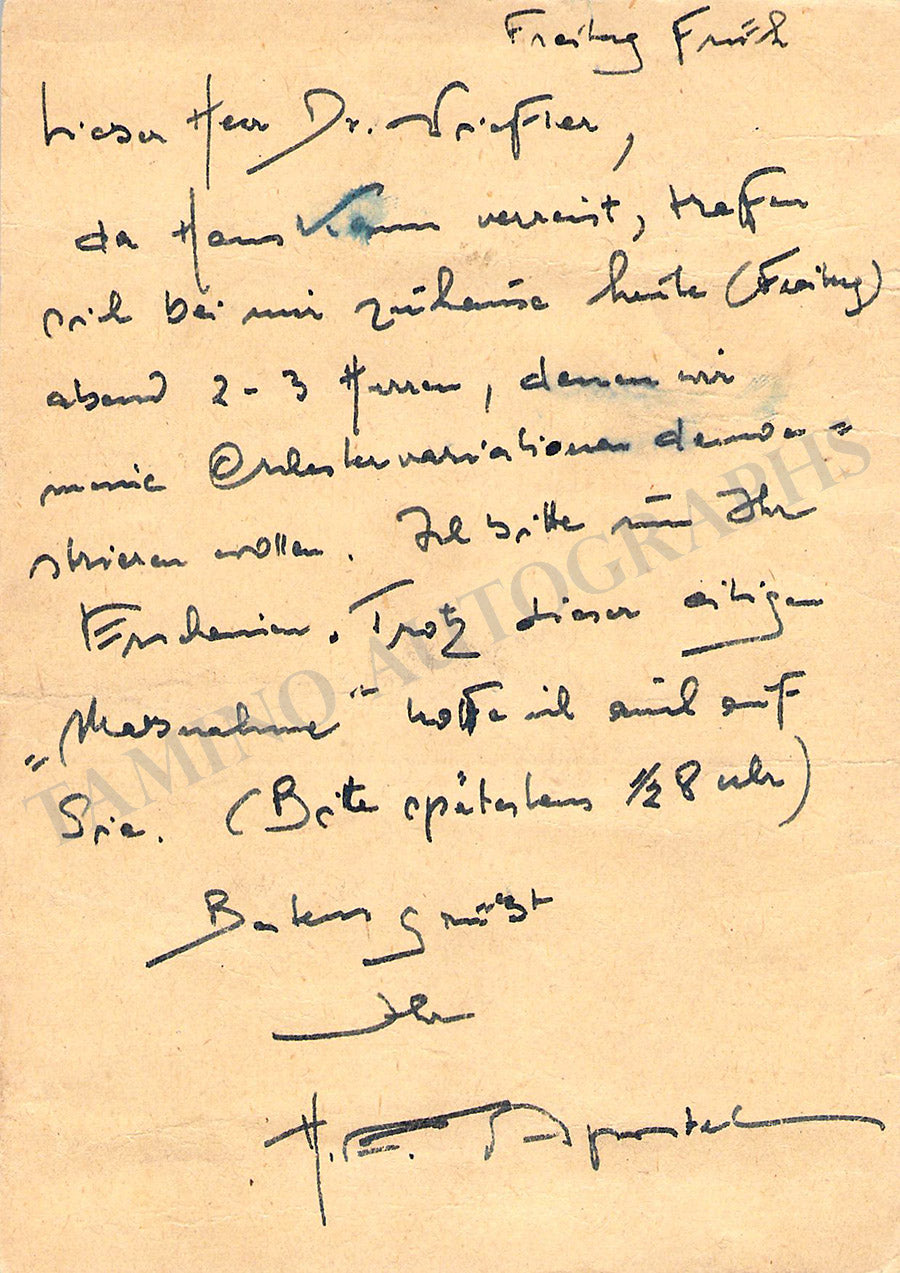 Freitag Früh
Lieber Herr Dr.
da Hans verreist, treffen
sich bei mir zuhause heute (Freitag)
abend 2-3 Herren, denen wir
meine Orchestervariationen demon=
strieren wollen. Ich bitte um Ihr
Erscheinen. Trotz dieser eiligen
"Massnahme" hoffe ich auch auf
Sie. (Bitte spätestens 1/2 8 Uhr)
Bestens grüßt
Ihr
H.E. Apostel
TAMINO AUTOGRAPHS